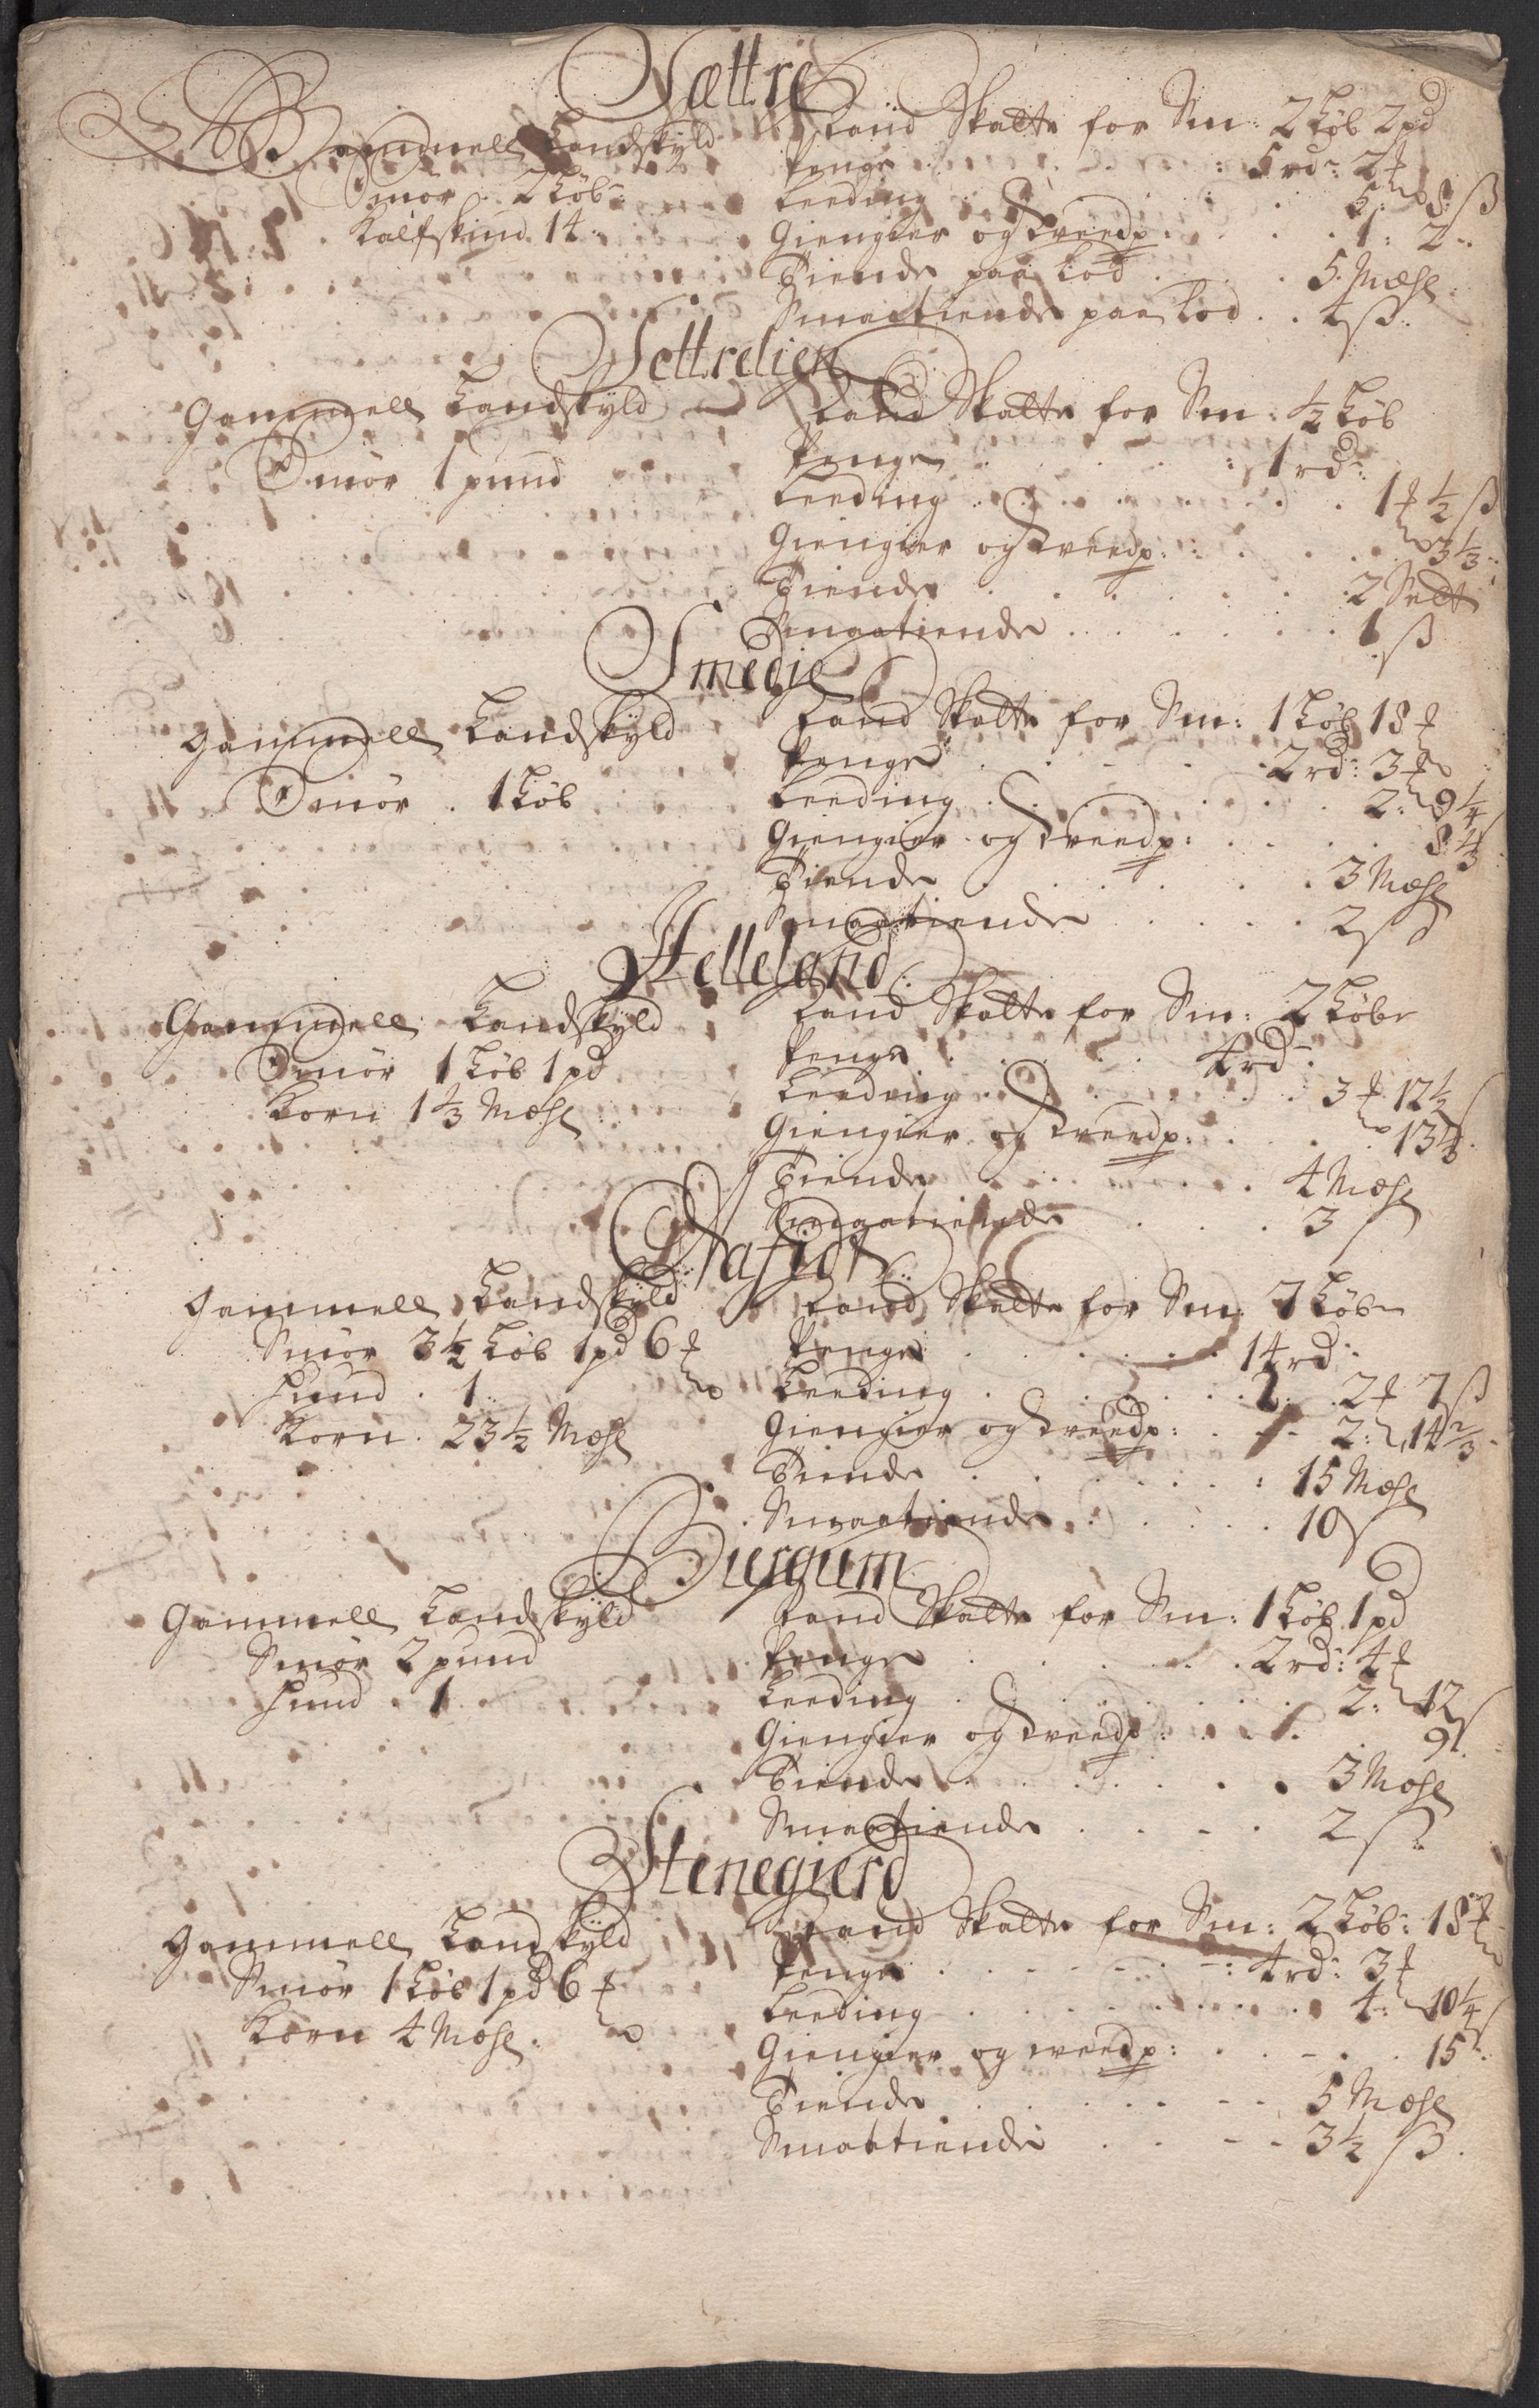 Sættre
Gammell Landskyld
Smør . 2 Løb
Kalfskind 14
Land Skatte for Sm: 2 Løb 2 pd
Penge . . . 5 rd: 2 ℔
Leeding . . . 5: 8 ß
Giengier og Wredp: . . . 1: 2
Tiende paa Lod . . . 5 Mæhl
Smaatiende paa Lod . . 4 ß
Settrelien
Gammell Landskyld
Smør 1 pund
Land Skatte for Sm: ½ Løb
Penge . . . 1 rd:
Leeding . . . 1 ½ ß
Giengier og Wredp: . . . 3⅓
Tiende . . . 2 Selt
Smaatiende . . . 1 ß
Smedie
Gammell Landskyld
Smør . 1 Løb
Land Skatte for Sm: 1 Løb 18
Penge . . . 2 rd: 3
Leeding . . . 2: 9¼
Giengier og Wredp: . . . 8⅓
Tiende . . . 3 Mæhl
Smaatiende . . . 2 ß
Helleland
Gammell Landskyld
Smør 1 Løb 1 pd
Korn 1⅓ Mæhl
Land Skatte for Sm: 2 Løbe
Penge . . . 4 rd:
Leeding . . . 3 12½
Giengier og Wredp: . . . 13⅓
Tiende . . . 4 Mæhl
Smaatiende . . . 3 ß
Gammell Landskyld
Smør 3½ Løb 1 pd 6
Hund . 1
Korn . 23½ Mæhl
Land Skatte for Sm: 7 Løbe
Penge . . . 14 rd:
Leeding . . . 2: 2 7 ß
Giengier og Wredp: . . . 2: 14⅔
Tiende . . . 15 Mæhl
Smaatiende . . . 10 ß
Biergum
Gammell Landskyld
Smør 2 pund
Hund . 1
Land Skatte for Sm: 1 Løb 1 pd
Penge . . . 2 rd: 4
Leeding . . . 2: 12 ß
Giengier og Wredp: . . . 9
Tiende . . . 3 Mæhl
Smaatiende . . . 2 ß
Stenegierd
Gammell Landskyld
Smør 1 Løb 1 pd 6
Korn 4 Mæhl
Land Skatte for Sm: 2 Løb: 18
Penge . . . 4 rd: 3
Leeding . . . 4: 10¼ ß
Giengier og Wredp: . . . 15
Tiende . . . 5 Mæhl
Smaatiende . . . 3½ ß